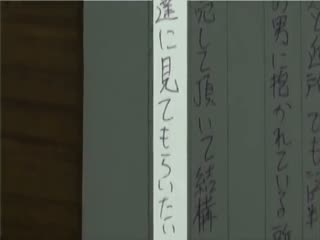 も近所
の男に抱かれている所
して頂いて結構
達に見てもらいたい